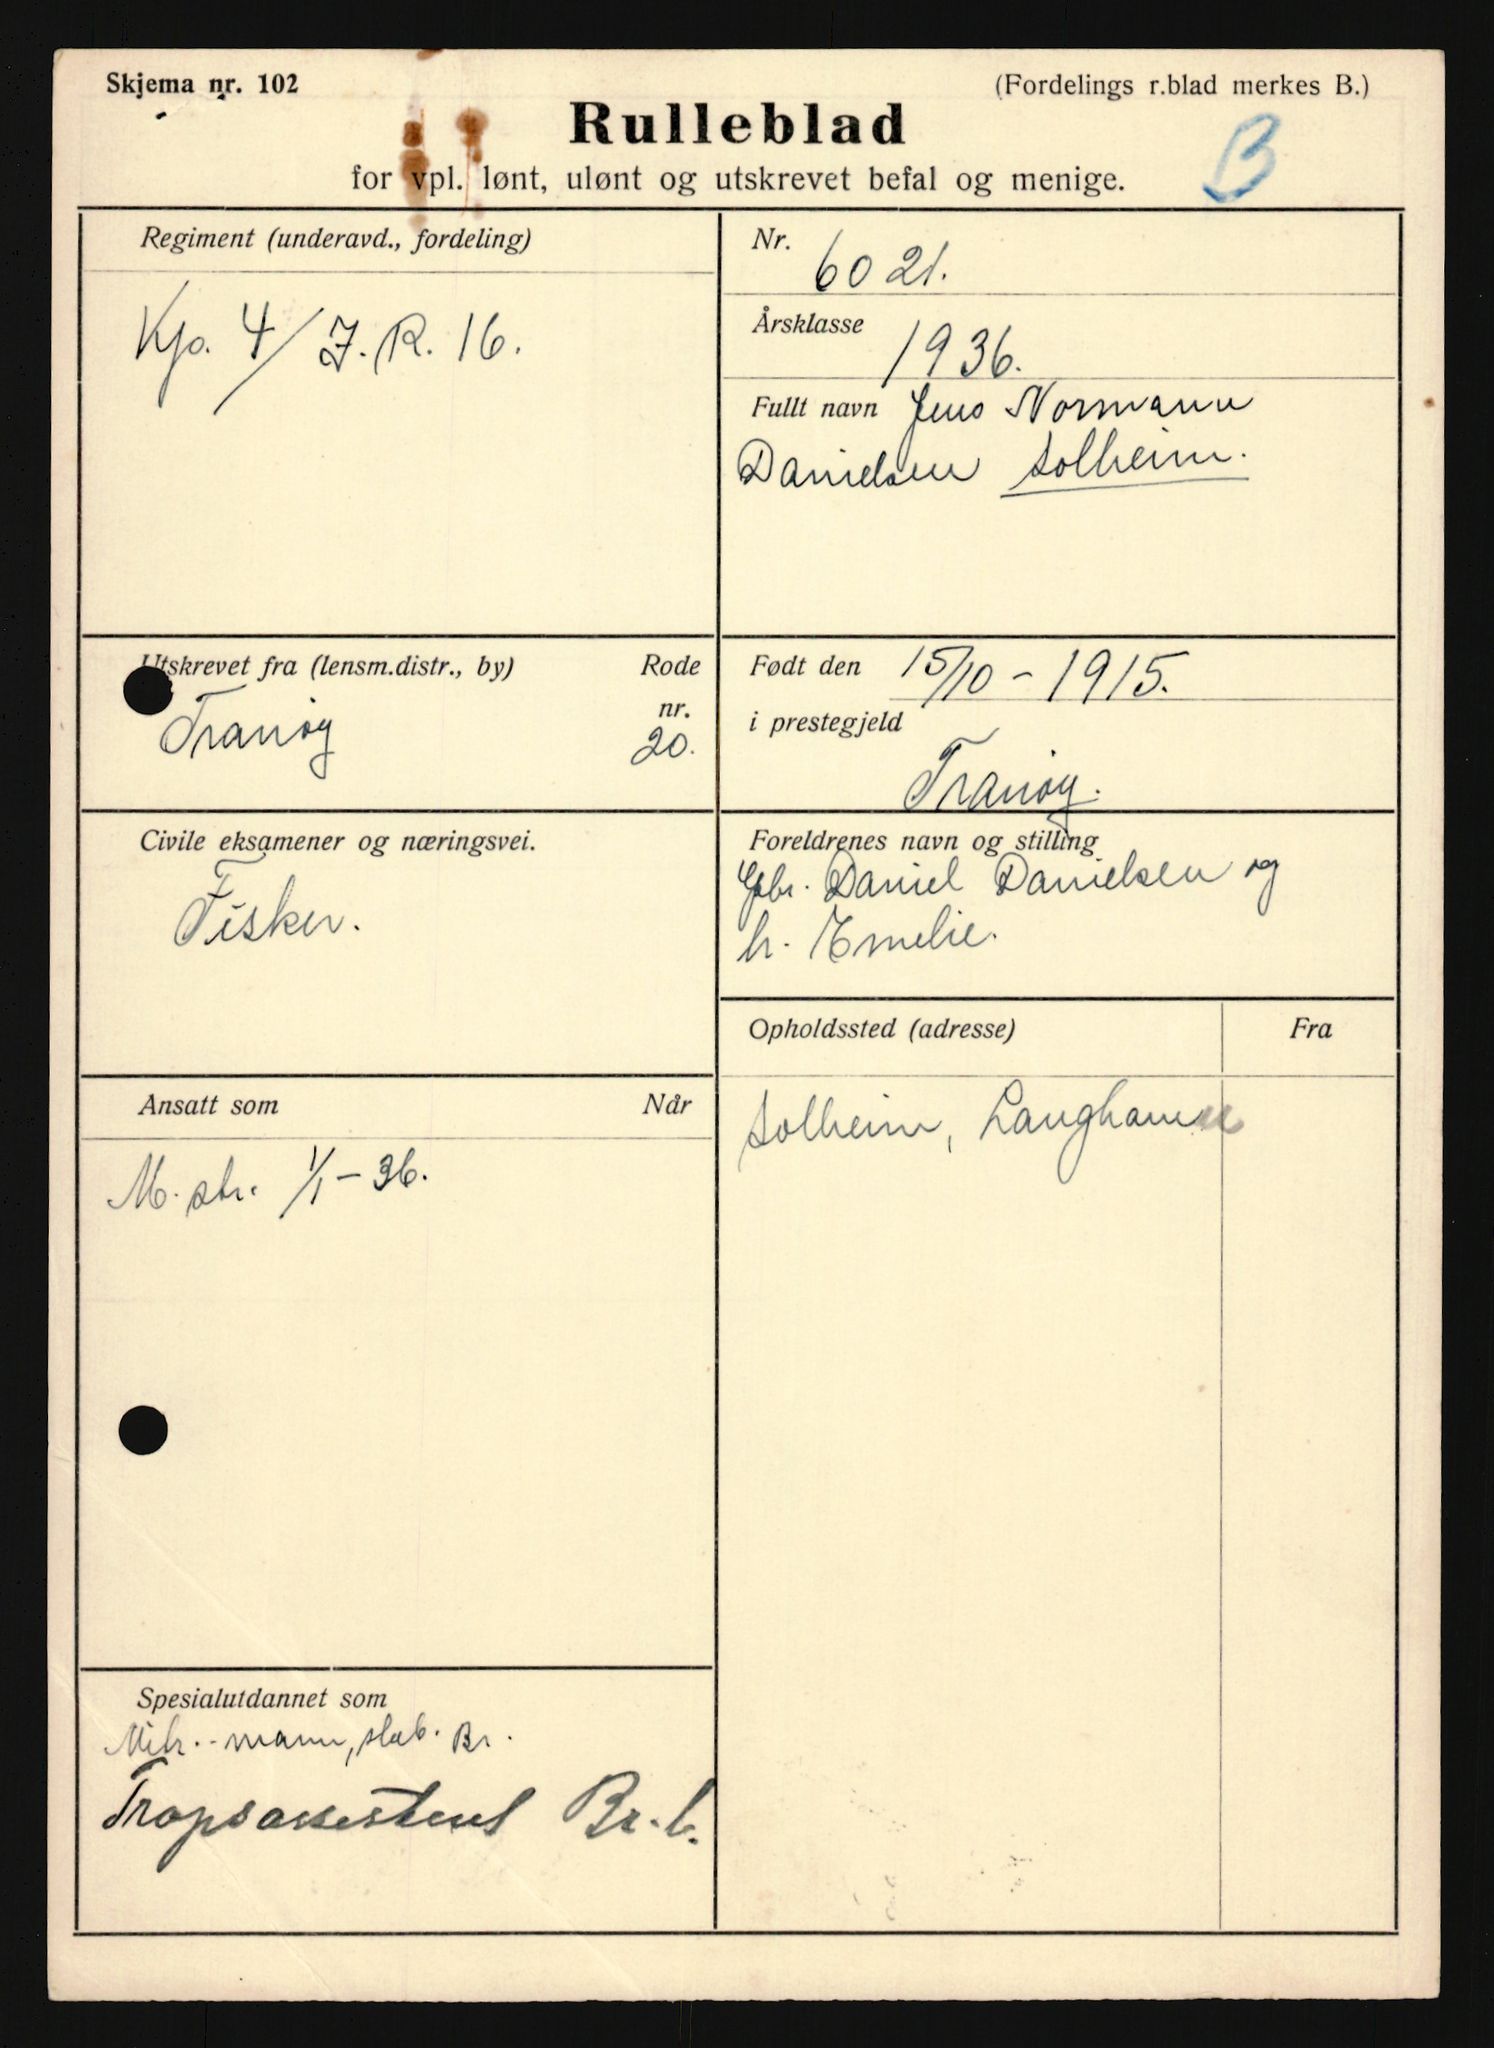 Skjema nr. 102
(Fordelings r.blad merkes B.)
Rulleblad
B
for vpl. lønt, ulønt og utskrevet befal og menige.
Regiment (underavd., fordeling)
Kp. 4/ J. R. 16.
Nr.
6021.
Årsklasse
1936.
Fullt navn Jens Normann
Danielsen Solheim.
Utskrevet fra (lensm.distr., by)
Rode
nr.
Tranøy
20.
Født den 15/10 - 1915.
i prestegjeld
Tranøy.
Civile eksamener og næringsvei.
Fisker.
Foreldrenes navn og stilling
Gbr. Daniel Danielsen og
h. Emelie.
Opholdssted (adresse)
Fra
Solheim, Langhamn
Ansatt som
Når
M. str. 1/1 - 36.
Spesialutdannet som
Mitr.-mann, slab. Br.
Tropsassistent Br. b.